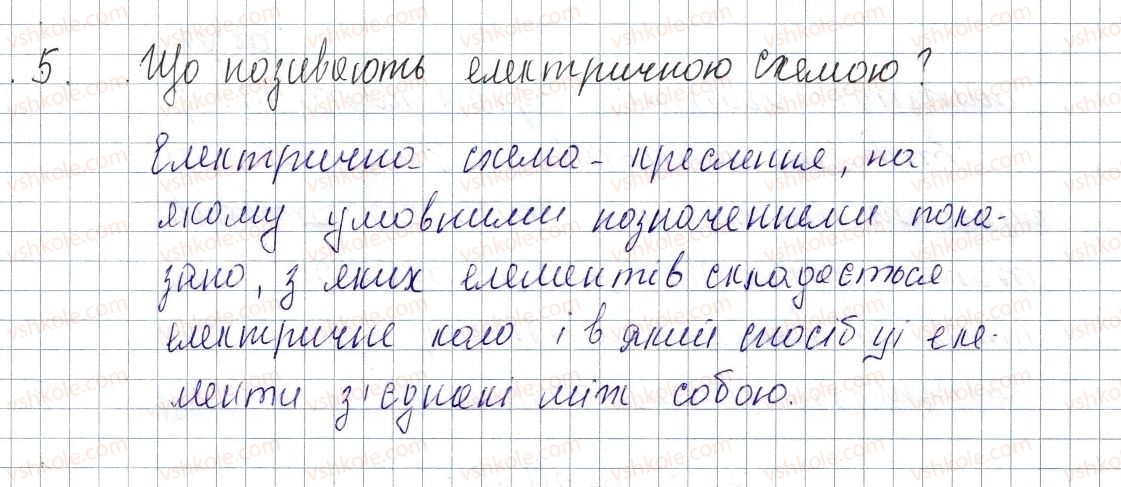 5. Що називають електричною схемою?
Електрична схема - креслення, на
якому умовними позначеннями пока-
зано, з яких елементів складається
електричне коло і в який спосіб ці еле-
менти з'єднані між собою.